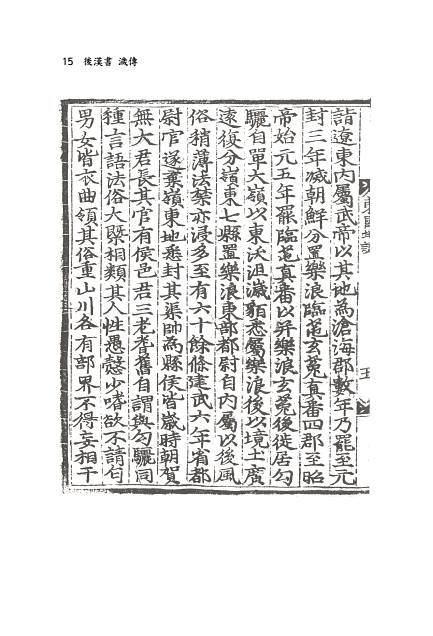 15 後漢書 濊傳
詣遼東內屬武帝以其地為滄海郡數年乃罷至元
封三年滅朝鮮分置樂浪臨芚玄菟真番四郡至昭
帝始元五年罷臨芚真番以并樂浪玄菟後徙居勾
驪自單大嶺以東沃沮濊貊悉屬樂浪後以境土廣
遠復分嶺東七縣置樂浪東部都尉自內屬以後風
俗稍薄法禁亦浸多至有六十餘條建武六年省都
尉官遂棄嶺東地悉封其渠帥為縣侯皆歲時朝賀
無大君長其官有侯邑君三老耆舊自謂與勾驪同
種言語法俗大槩相類其人性愚慤少嗜欲不請匄
男女皆衣曲領其俗重山川各有部界不得妄相干